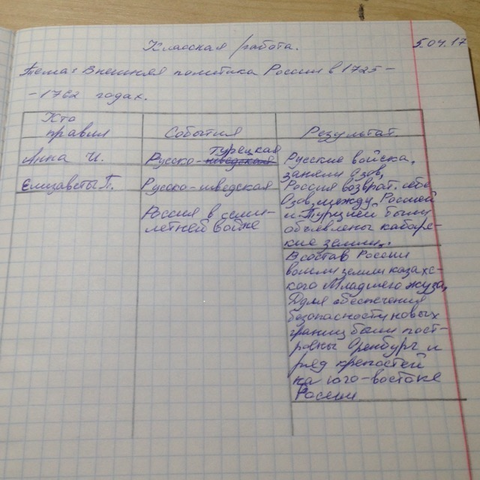 Классная работа. 5.04.17
Тема: Внешняя политика России в 1725-
-1762 годах.
Кто
правил
События
Результат.
Анна И.
турецкая
Русско-шведская
Русские войска,
заняли Азов,
Елизаветы П.
Русско-шведская
Россия в семи-
летней войне
Россия возврат. себе
Азов, между Россией
и Турцией были
объявлены кабарс-
кие земли.
В состав России
вошли земли казахс-
кого Младшего жуза,
Для обеспечения
безопасности новых
границ были пост-
роены Оренбург и
ряд крепостей
на юго-востоке
России